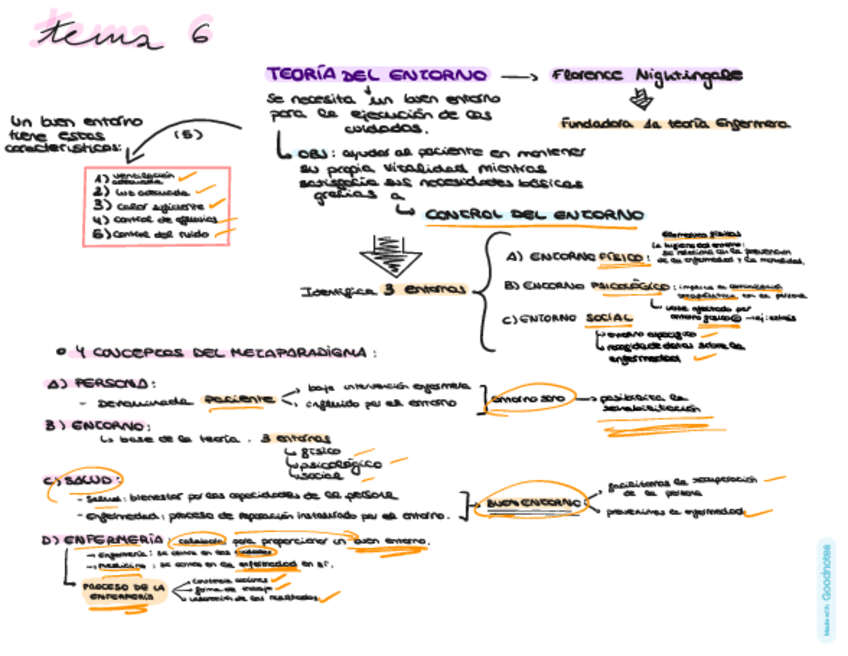 tema 6
TEORÍA DEL ENTORNO → Florence Nightingale
Fundadora 1a teoría Enfermera
Se necesita un buen entorno
para la ejecución de los
cuidados.
Un buen entorno
tiene estas
características:
(5)
1) ventilación
adecuada
2) luz adecuada
3) calor suficiente
4) control de efluvios
5) control del ruido
OBJ: ayudar al paciente en mantener
su propia vitalidad mientras
satisfacía sus necesidades básicas
gracias a
CONTROL DEL ENTORNO
Identifica 3 entornos
A) ENTORNO FÍSICO:
elementos físicos
la higiene del entorno:
se relaciona con la prevención
de la enfermedad y la mortalidad.
B) ENTORNO PSICOLÓGICO: implica la comunicación
terapéutica con la persona
C) ENTORNO SOCIAL
entorno específico
recogida de datos sobre la
enfermedad
4 CONCEPTOS DEL METAPARADIGMA:
A) PERSONA:
- Denominada paciente
bajo intervención enfermera
influido por el entorno
entorno sano → posibilita la
rehabilitación
B) ENTORNO:
↳ base de la teoría. 3 entornos
↳ físico
↳ psicológico
↳ social
C) SALUD:
- Salud: bienestar por las capacidades de la persona
- Enfermedad: proceso de reparación instaurado por el entorno.
BUEN ENTORNO:
facilitamos la recuperación
de la persona
prevenimos la enfermedad
D) ENFERMERÍA: para proporcionar un buen entorno.
→ enfermería: se centra en los cuidados
→ medicina: se centra en la enfermedad en sí.
PROCESO DE LA
ENFERMERÍA
forma de trabajo
valoración de los resultados
Made with Goodnotes